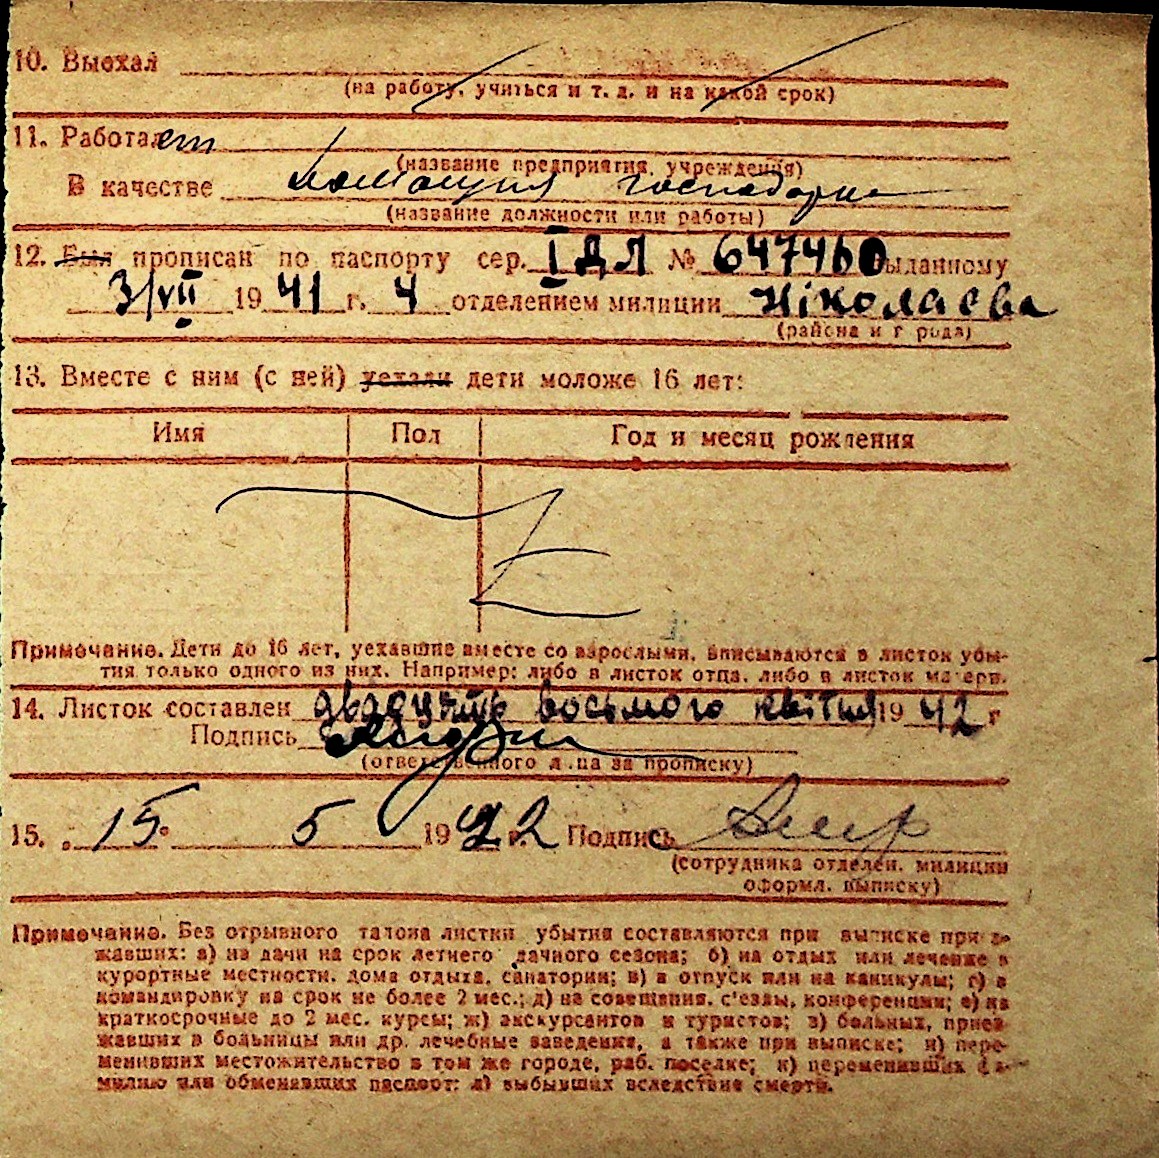 10. Выехал
(на работу, учиться и т. д. и на какой срок)
11. Работает
(название предприятия, учреждения)
В качестве домашня господарка
(название должности или работы)
12. Был прописан по паспорту сер. ІДЛ № 647460 выданному
3/VII 1941 г. 4 отделением милиции Ніколаєва
(района и города)
13. Вместе с ним (с ней) уехали дети моложе 16 лет:
Имя Пол Год и месяц рождения
Примечание. Дети до 16 лет, уехавшие вместе со взрослыми, вписываются в листок убы-
тия только одного из них. Например: либо в листок отца, либо в листок матери.
14. Листок составлен двадцять восьмого квітня 1942 г
Подпись
(ответственного лица за прописку)
15. „15“ 5 1942 г. Подпись
(сотрудника отделен. милиции
оформл. выписку)
Примечание. Без отрывного талона листки убытия составляются при выписке приез-
жавших: а) на дачи на срок летнего дачного сезона; б) на отдых или лечение в
курортные местности, дома отдыха, санатории; в) в отпуск или на каникулы; г) в
командировку на срок не более 2 мес.; д) на совещания, с'езды, конференции; е) на
краткосрочные до 2 мес. курсы; ж) экскурсантов и туристов; з) больных, приез-
жавших в больницы или др. лечебные заведения, а также при выписке; и) пере-
менивших местожительство в том же городе, раб. поселке; к) переменивших фа-
милию или обменявших паспорт; л) выбывших вследствие смерти.